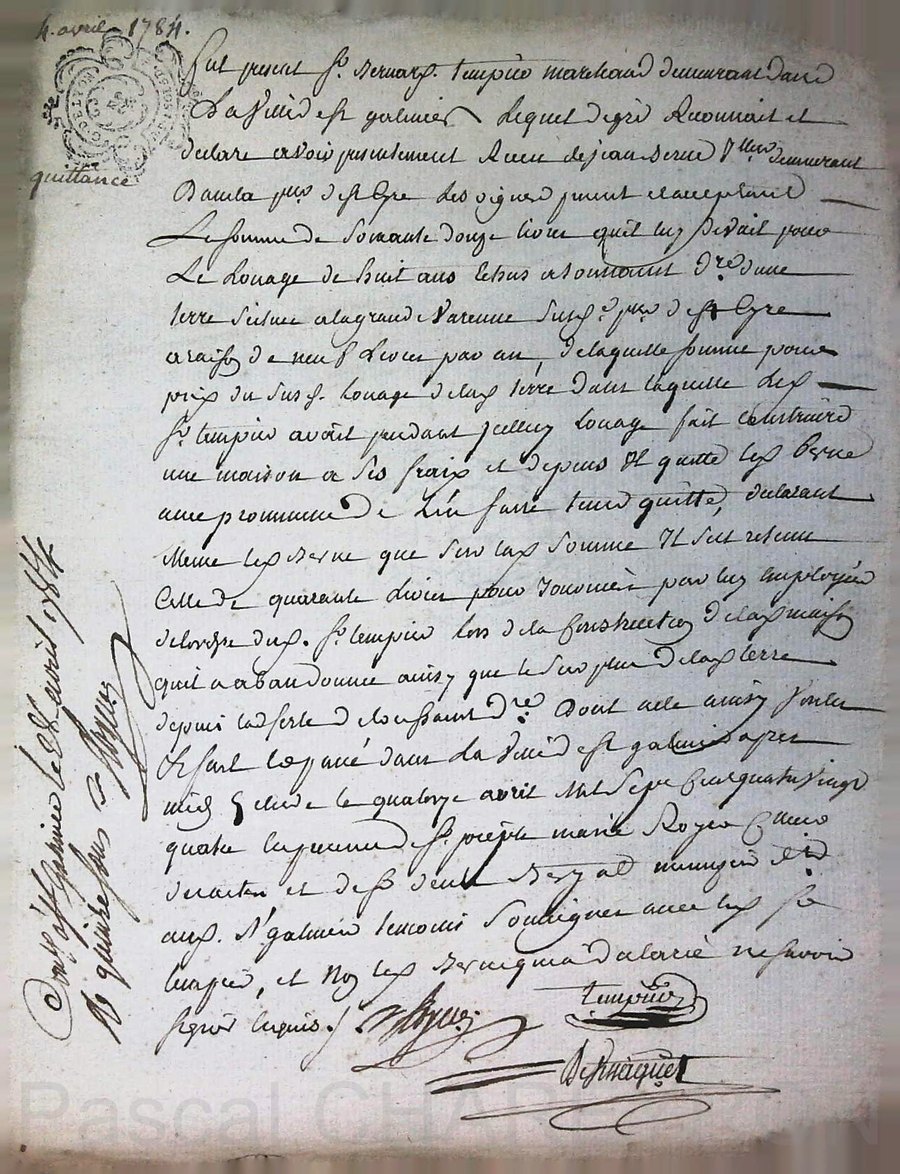 4. avril 1784.
quittance
fut present Sr. Bernard. tempier marchand demeurant dans
La Ville de st galmier Lequel de gré Reconnait et
declare avoir presentement Receu de jean Berne demeurant
Dans la de st Cyre Les vignes present et acceptant
La somme de soixante douze livres quil luy Devait pour
Le Louage de huit ans Echus a la toussaint dre dune
terre scituée a la grande varenne susd. de st Cyre
a raison de neuf Livres par an, de laquelle somme pour
prix du susd. Louage de lad terre dans laquelle led
Sr tempier avait pendant Icelluy Louage fait Construire
une maison a ses fraix et depens Il quitte led Berne
avec promesse de L'en faire tenir quitte, declarant
meme led Berne que sur lad somme Il sest retenu
Celle de quarante Livres pour Journées par luy Employées
de lordre dud. Sr. tempier Lors de la Construction de lad maison
quil a abandonnée ainsy que le surplus de lad terre
depuis lad fete de toussaint dre Dont acte ainsy voulu
fait et passé dans La Ville de st galmier apres
midy le quatorze avril Mil Sept Cent quatre Vingt
quatre En presence de Sr. joseph marie Royer
et de Sr denis
aud. St galmier temoins soussignés avec led Sr
tempier, et Non led Berne qui a declaré ne savoir
signer Enquis.
tempier
Royer
Contlé a St Galmier le 28 avril 1784
R quinze sous
Royer
Pascal CHAPERON